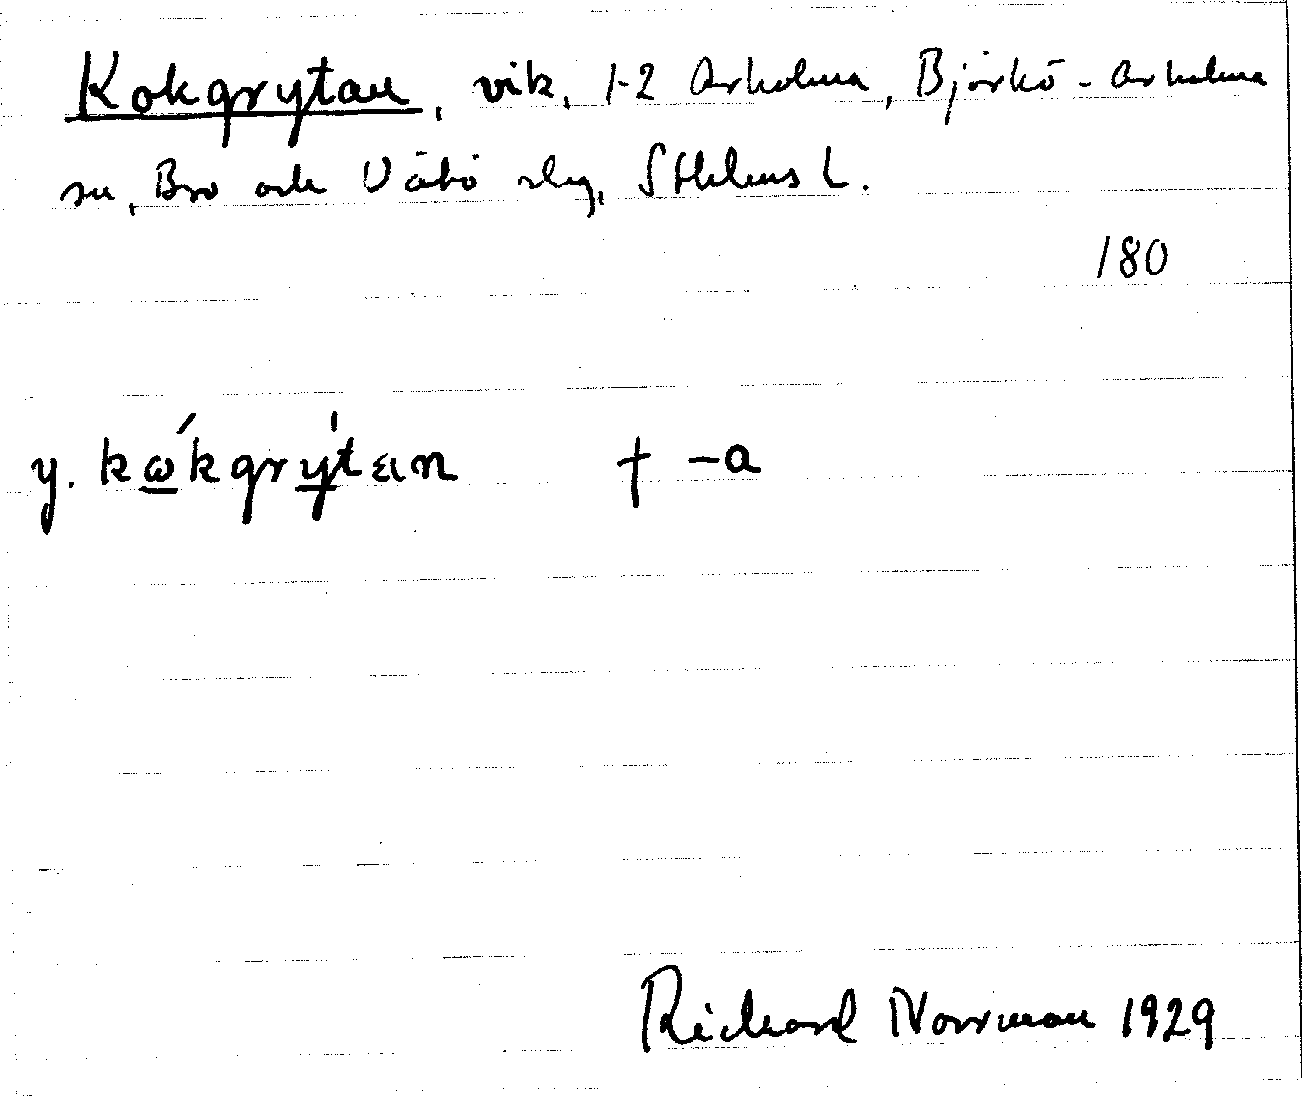 Kokgrytan, vik, 1-2 Arholma, Björkö-Arholma
sn, Bro och Vätö slg, Sthlms L.
180
y. kώkgrýtan † -a
Richard Norrman 1929